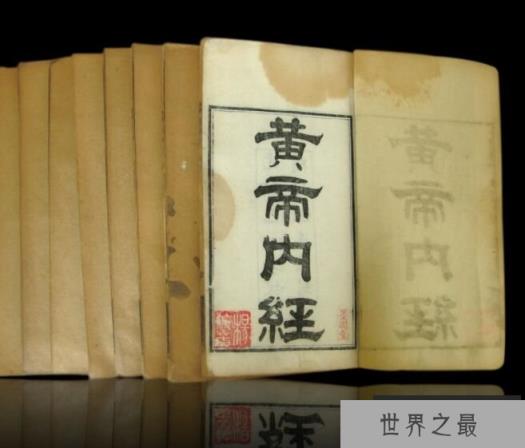 黄帝内經
世界之最